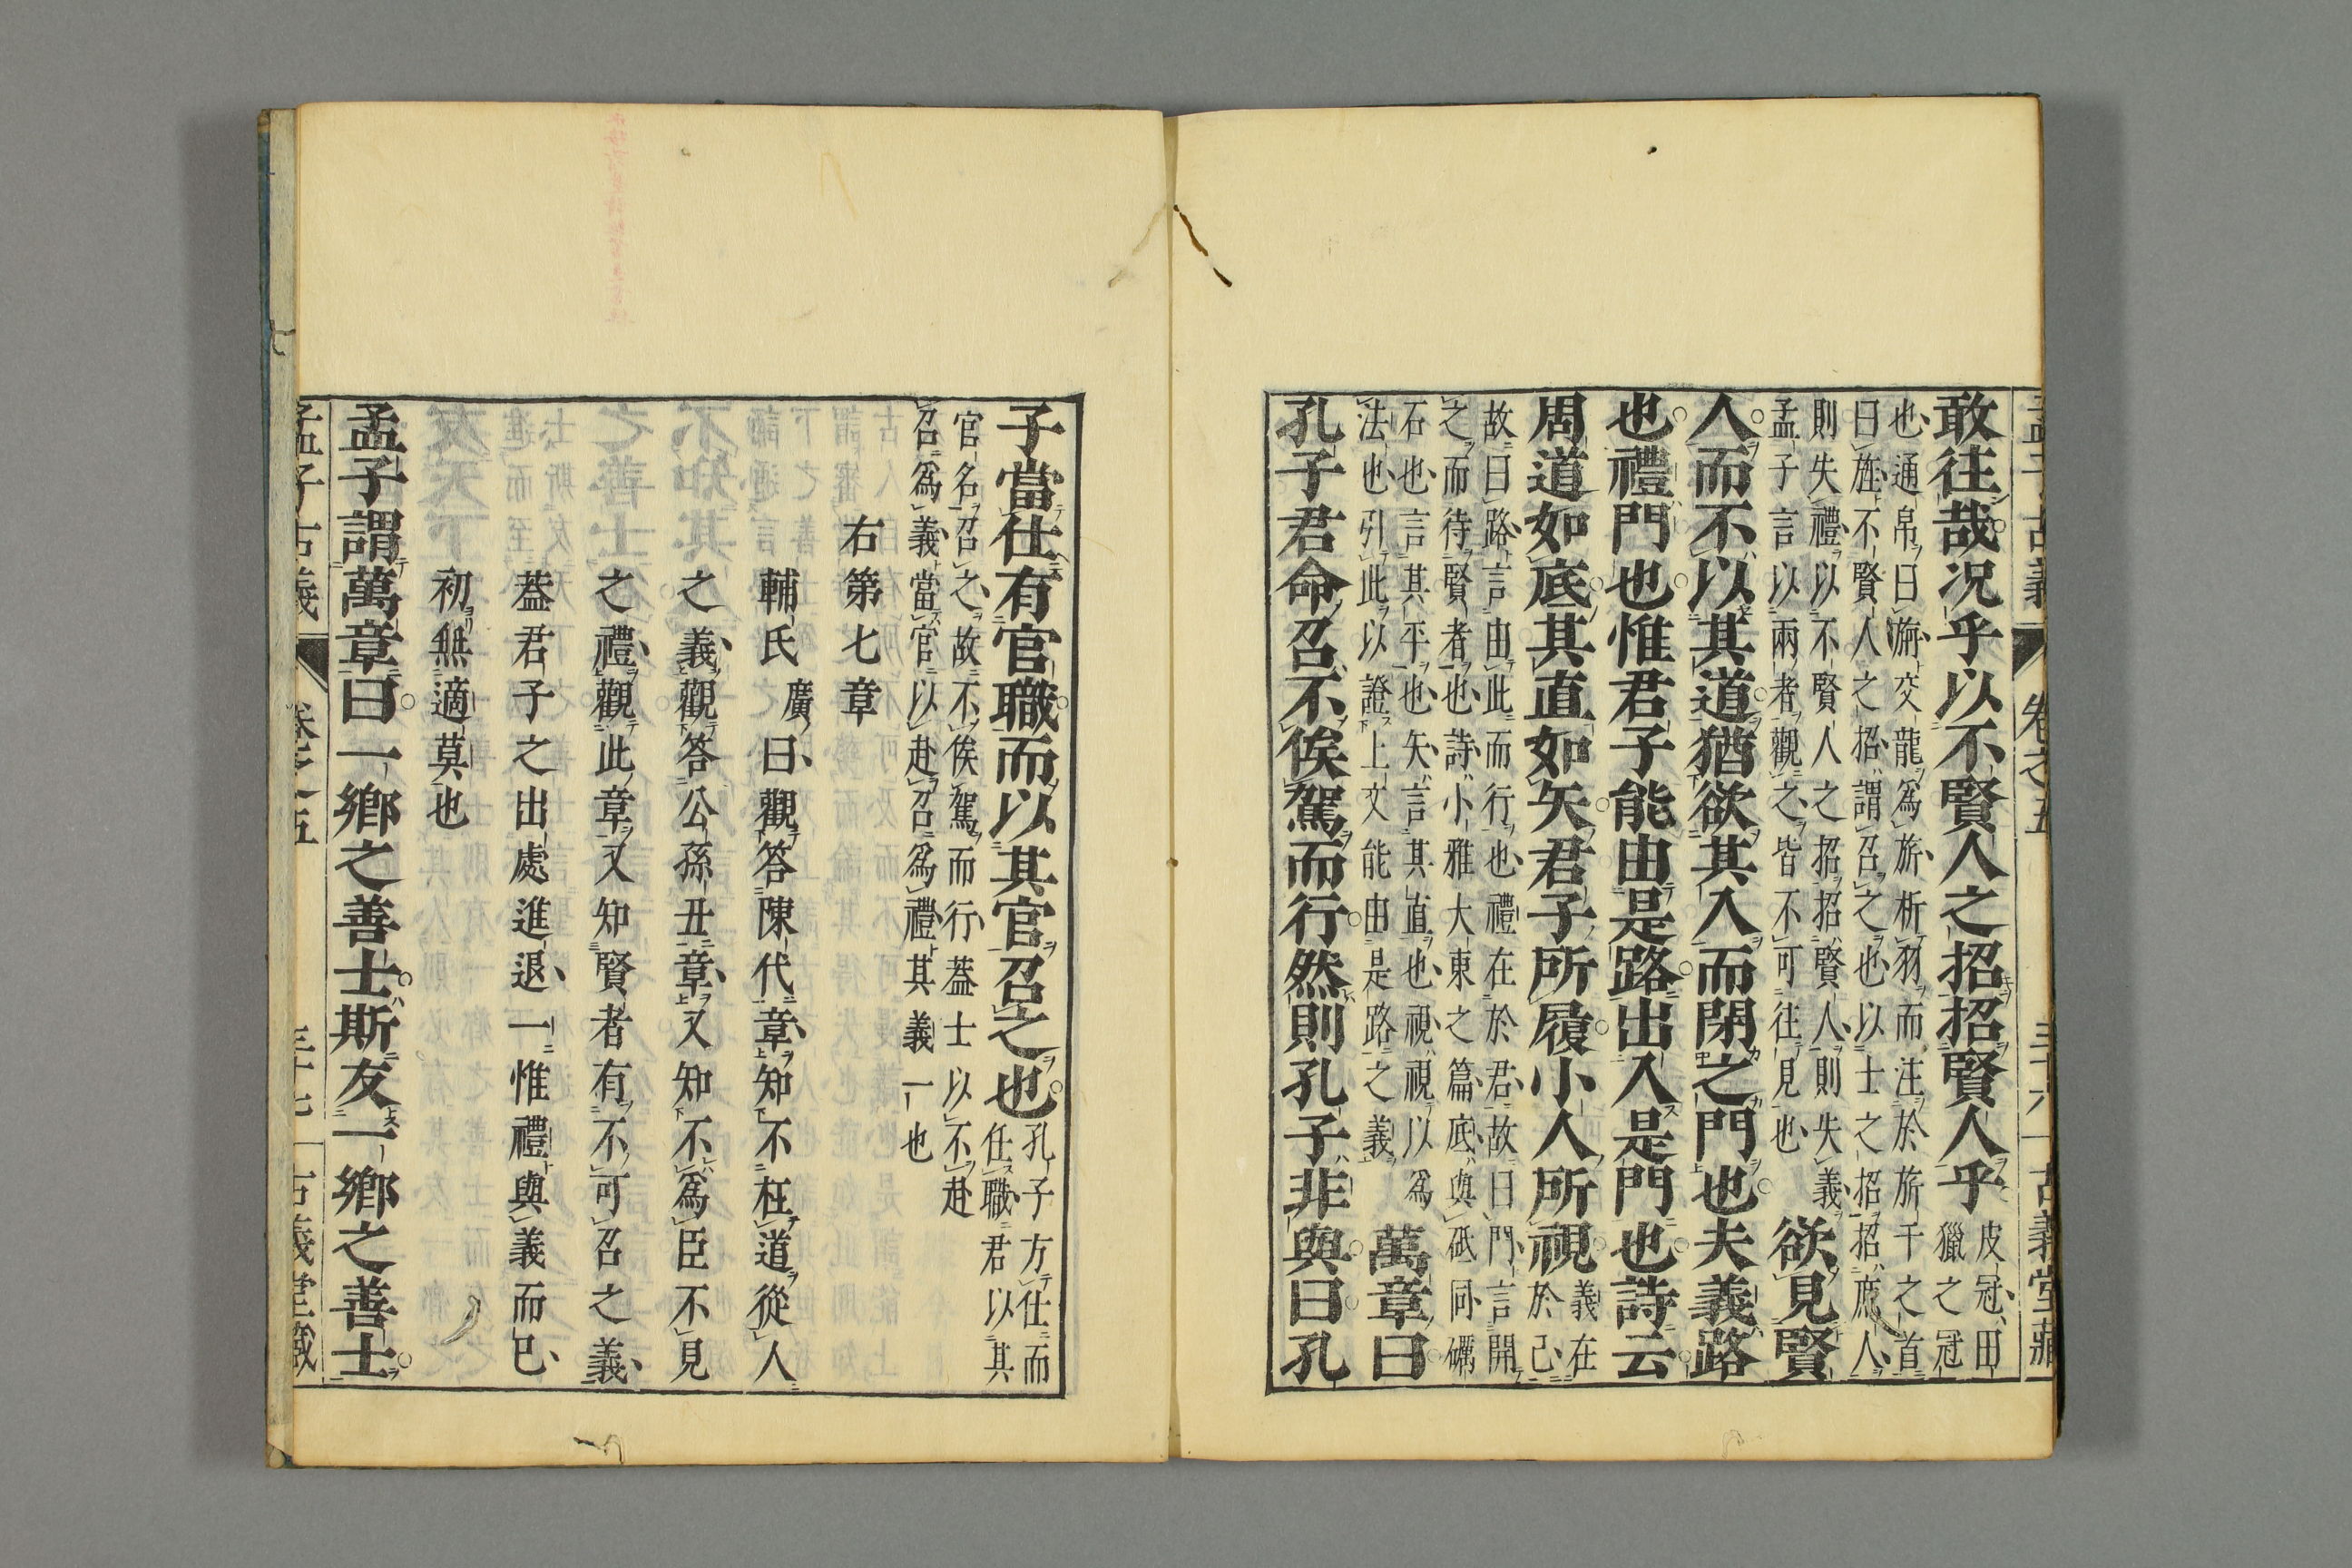 孟子古義 卷之五 三十六 古義堂藏
敢往哉况乎以不賢人之招招賢人乎 皮冠田
獵之冠
也通帛曰旃交龍爲旂析羽而注於旂干之首
曰旌不賢人之招謂召之也以士之招招庶人
則失禮以不賢人之招招賢人則失義
孟子言以兩者觀之皆不可往見也 欲見賢
人而不以其道猶欲其入而閉之門也夫義路
也禮門也惟君子能由是路出入是門也詩云
周道如底其直如矢君子所履小人所視 義在
於己
故曰路言由此而行也禮在於君故曰門言開
之而待賢者也詩小雅大東之篇底與砥同礪
石也言其平也矢言其直也視視以爲
法也引此以證上文能由是路之義 萬章曰
孔子君命召不俟駕而行然則孔子非與曰孔
子當仕有官職而以其官召之也 孔子方仕而
任職君以其
官名召之故不俟駕而行蓋士以不赴
召爲義當官以赴召爲禮其義一也
右第七章
輔氏廣曰觀答陳代章知不枉道從人
之義觀答公孫丑章又知不爲臣不見
之禮觀此章又知賢者有不可召之義
葢君子之出處進退一惟禮與義而已
初無適莫也
孟子謂萬章曰一鄉之善士斯友一鄉之善士
孟子古義 卷之五 三十七 古義堂藏